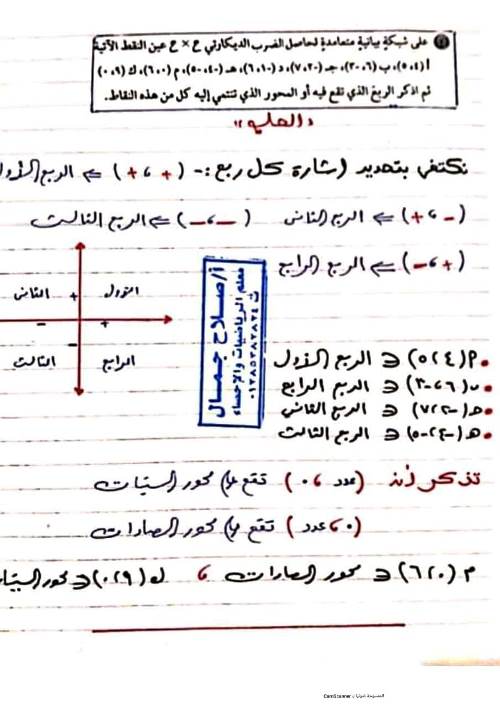 على شبكة بيانية متعامدة لحاصل الضرب الديكارتي ح × ح عين النقط الآتية
أ (٤، ٥)، ب (٦، -٣)، جـ (-٢، ٧)، د (-١، ٦)، هـ (-٤، -٥)، م (٠، ٦)، ك (٩، ٠)
ثم اذكر الربع الذي تقع فيه أو المحور الذي تنتمي إليه كل من هذه النقاط.
الحل
نكتفي بتحديد إشارة كل ربع :- (+ ، +) ⇐ الربع الأول
(- ، +) ⇐ الربع الثاني (- ، -) ⇐ الربع الثالث
(+ ، -) ⇐ الربع الرابع
الثاني + الأول
- +
الثالث الرابع
أ/صلاح جمال
معلم الرياضيات والإحصاء
P (٤، ٥) ∈ الربع الأول
ب (٦، -٣) ∈ الربع الرابع
(-٢، ٧) ∈ الربع الثاني
هـ (-٤، -٥) ∈ الربع الثالث
تذكر أن (عدد ، ٠) تقع على محور السينات
(٠ ، عدد) تقع على محور الصادات
م (٠، ٦) ∈ محور الصادات ، ك (٩، ٠) ∈ محور السينات
CamScanner